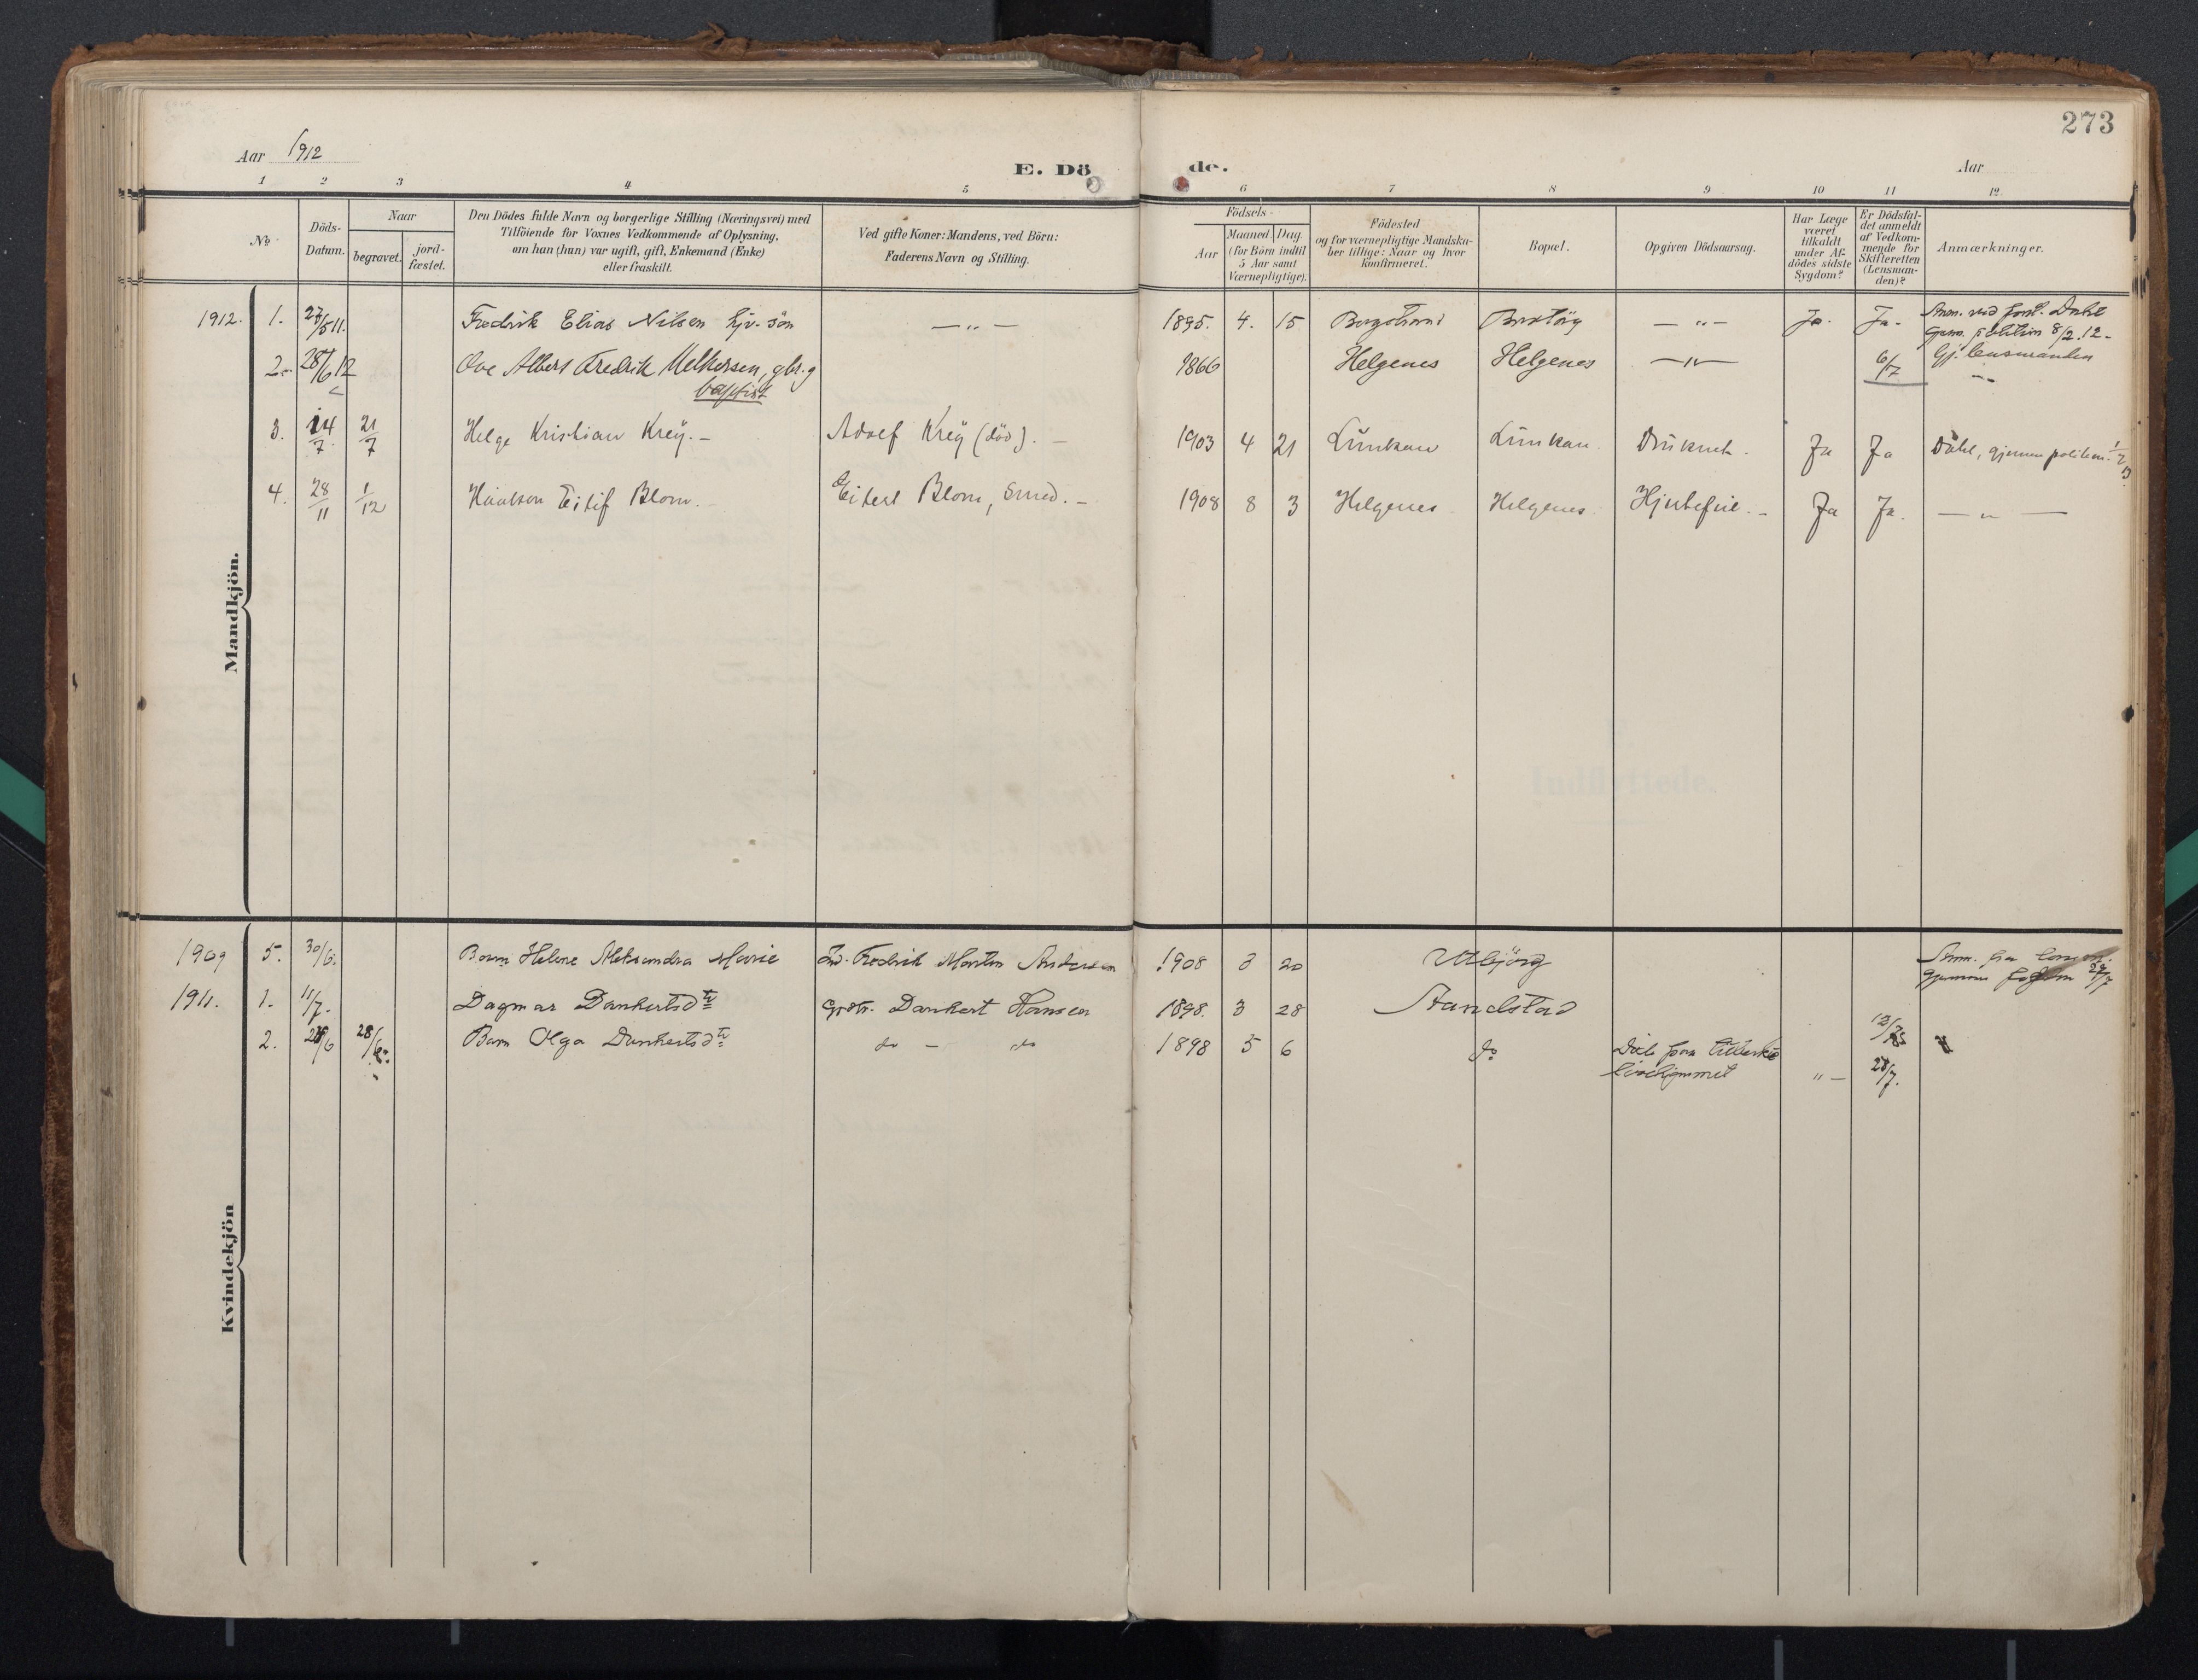 273
Aar 1912
E. Dö
de.
Aar
1 2 3 4 5 6 7 8 9 10 11 12
No
Döds-
Datum.
Naar
begravet.
jord-
fæstet.
Den Dödes fulde Navn og borgerlige Stilling (Næringsvei) med
Tilföiende for Voxnes Vedkommende af Oplysning,
om han (hun) var ugift, gift, Enkemand (Enke)
eller fraskilt.
Ved gifte Koner: Mandens, ved Börn:
Faderens Navn og Stilling.
Födsels-
Aar
Maaned. Dag.
(for Börn indtil
5 Aar samt
Værnepligtige).
Födested
og for værnepligtige Mandska-
ber tillige: Naar og hvor
konfirmeret.
Bopæl.
Opgiven Dödsaarsag.
Har Læge
været
tilkaldt
under Af-
dödes sidste
Sygdom?
Er Dödsfal-
det anmeldt
af Vedkom-
mende for
Skifteretten
(Lensman-
den)?
Anmærkninger.
Mandkjön.
1912. 1. 27/5 11. Fredrik Elias Nilsen — „ — 1895. 4. 15 — „ — Ja. Ja. Anm. ved Dahl
8/2 12.
2. 28/6 12 Ove Albert Fredrik Melkersen, gbr.
baptist
1866 Helgenes Helgenes — „ — 6/7 Gj. lensmanden
3. 14/7 21/7 Helge Kristian Kreÿ. — Adolf Kreÿ (död). — 1903 4 21 Druknet. Ja Ja Dahl, gjennem politim.
4. 28/11 1/12 Haakon Eilif Blom. Blom, smed. — 1908 8 3 Helgenes Helgenes. Ja Ja. — „ —
Kvindekjön
1909 5. 30/6. Barn Helene Aleksandra Marie Ind. Fredrik Martin Andersen 1908 3 20 Utbjörg
1911. 1. 11/7. Dagmar Dankertsdtr Dankert Hansen 1898. 3 28 Sandstad
2. 28/6. Barn Olga Dankertsdtr do — do 1898 5 6 do
„ — 28/7.